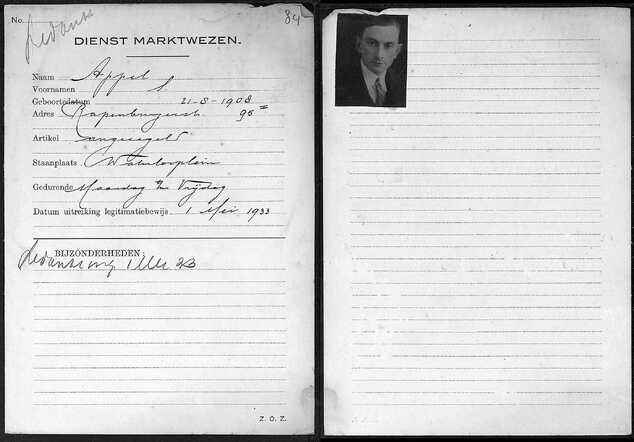 No. 84
Bedankt
DIENST MARKTWEZEN.
Naam Appel
Voornamen S
Geboortedatum 21-8-1908
Adres Rapenburgerstr 95 II
Artikel ongeregeld
Staanplaats Waterlooplein
Gedurende Maandag t/m Vrijdag
Datum uitreiking legitimatiebewijs 1 Mei 1933
BIJZONDERHEDEN:
Bedankt
Z. O. Z.